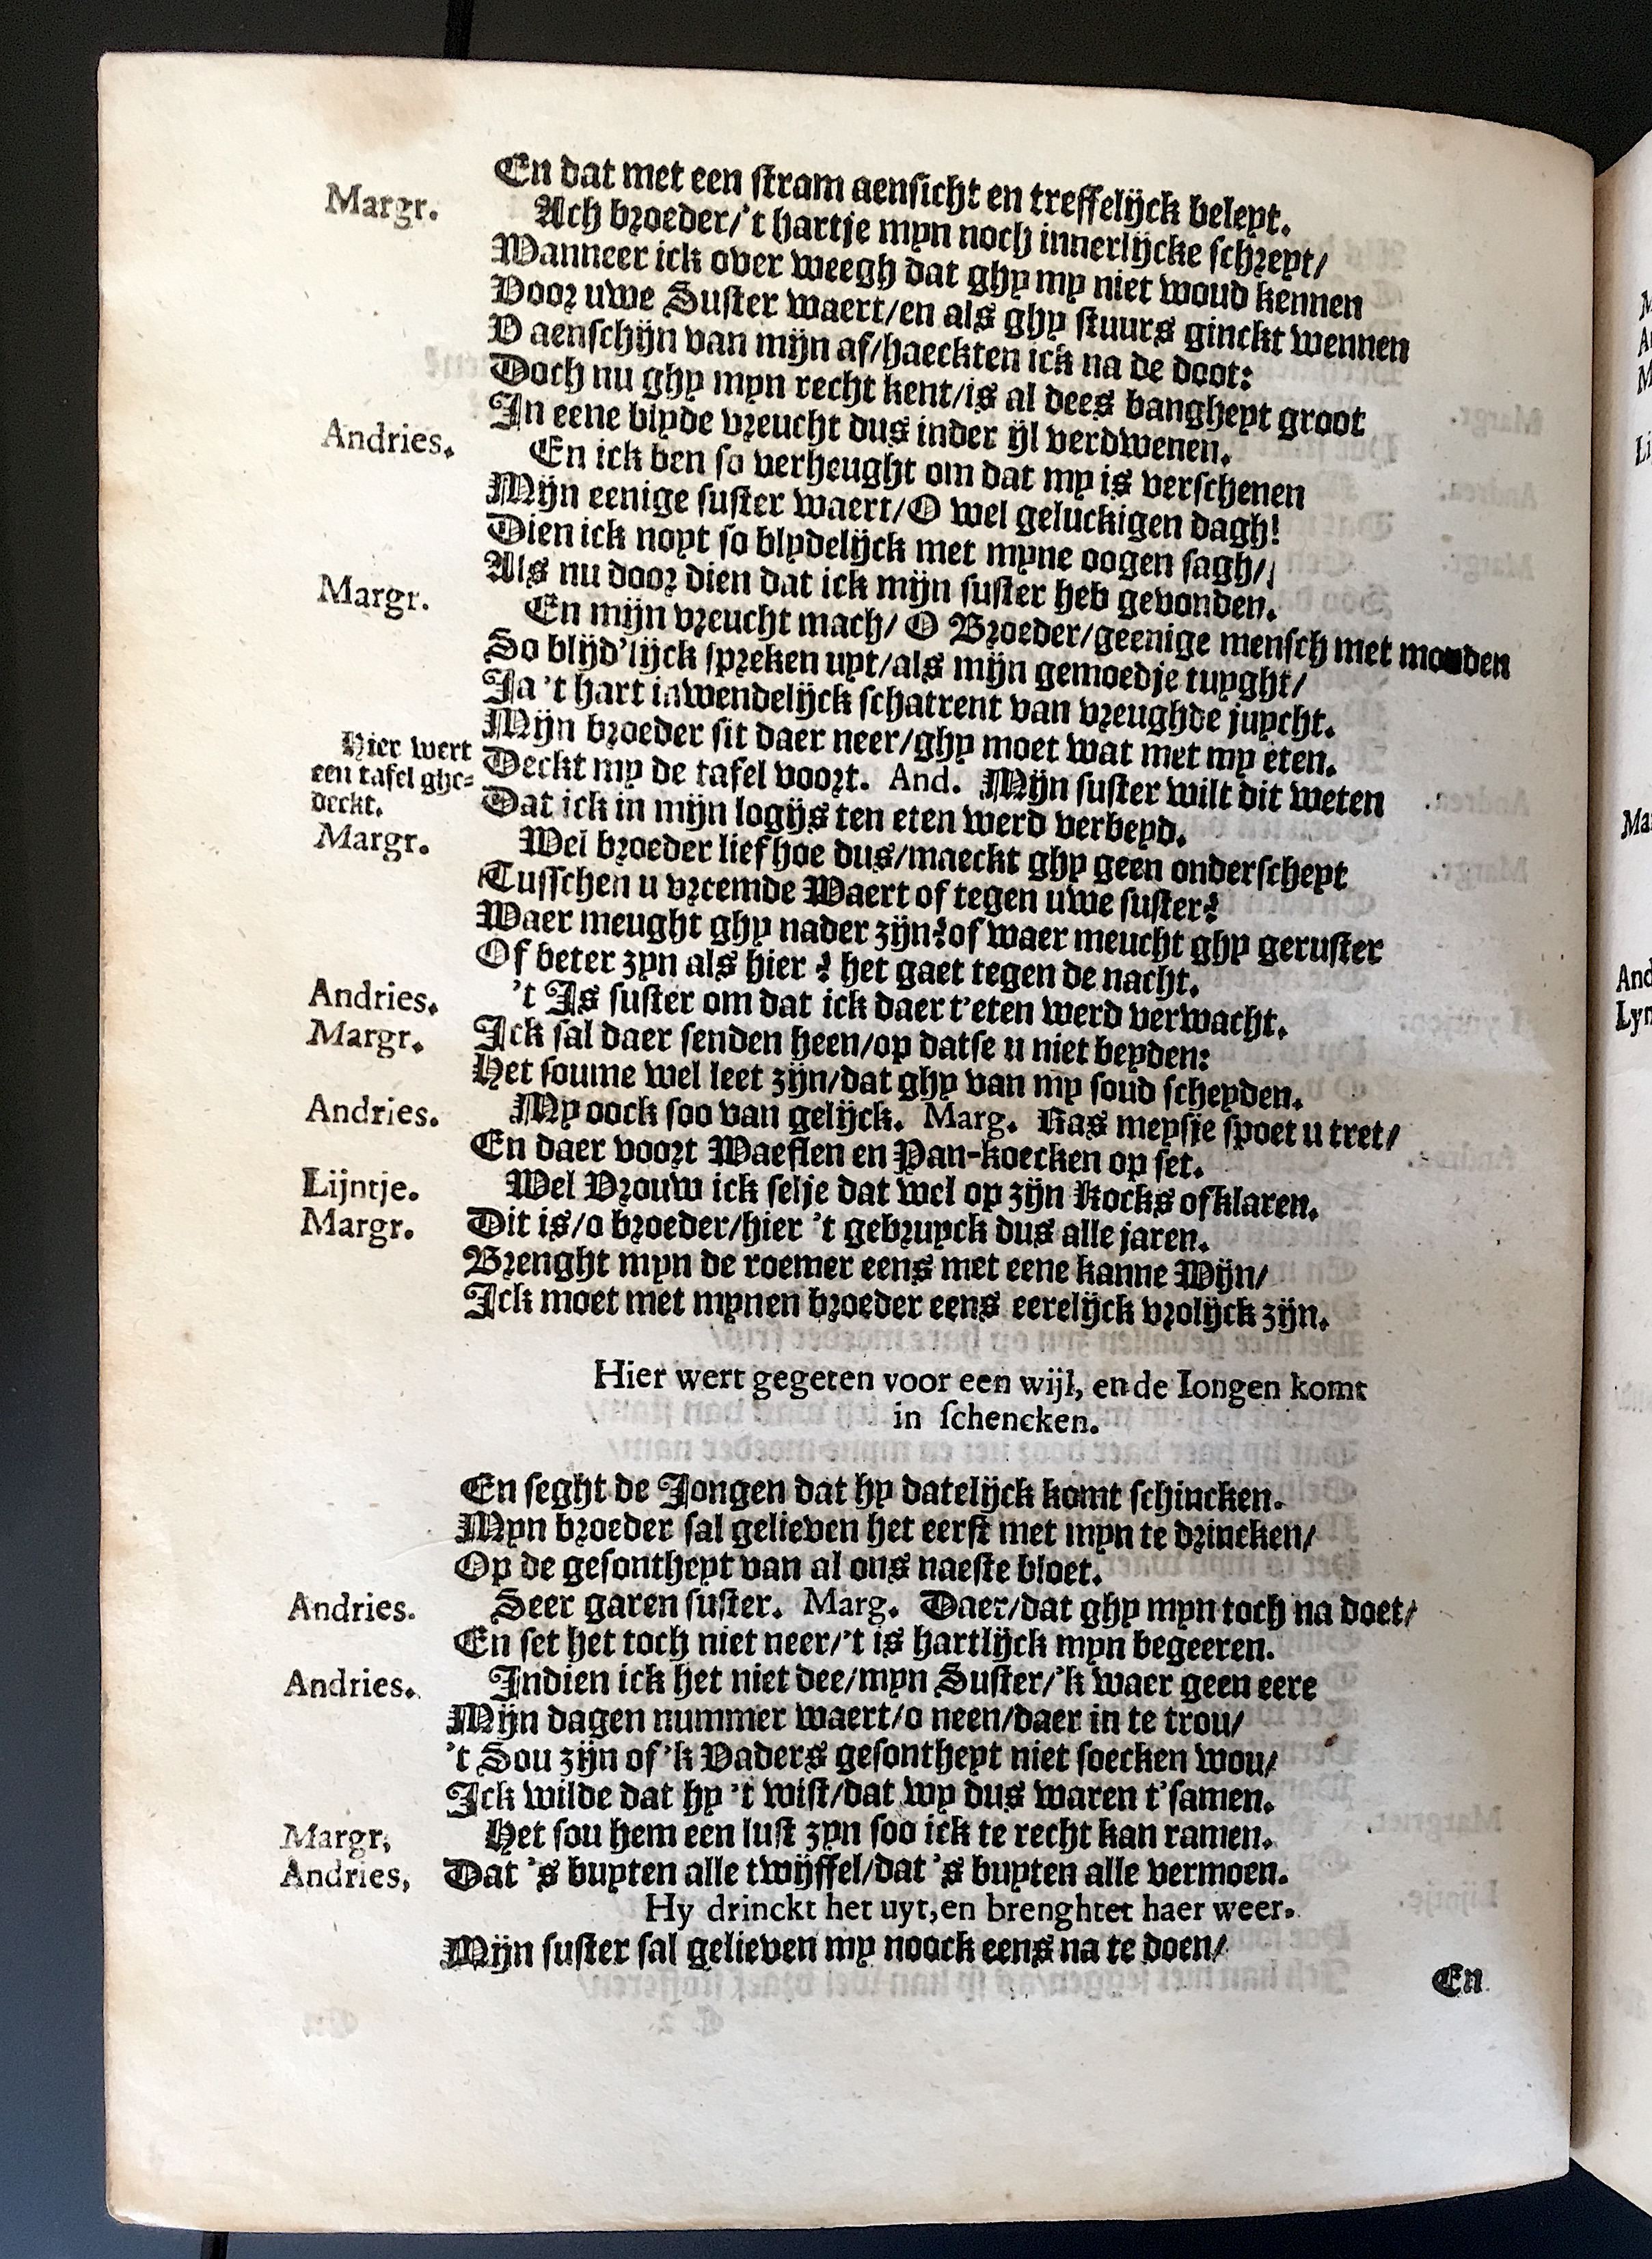 En dat met een stram aensicht en treffelijck beleyt.
Margr. Ach broeder/'t hartje myn noch innerlijcke schreyt/
Wanneer ick over weegh dat ghy my niet woud kennen
Voor uwe Suster waert/en als ghy stuurs ginckt wennen
V aenschijn van mijn af/haeckten ick na de doot:
Doch nu ghy myn recht kent/is al dees bangheyt groot
In eene blyde vreucht dus inder ijl verdwenen.
Andries. En ick ben so verheught om dat my is verschenen
Mijn eenige suster waert/O wel geluckigen dagh!
Dien ick noyt so blydelijck met myne oogen sagh/
Als nu door dien dat ick mijn suster heb gevonden.
Margr. En mijn vreucht mach/ O Broeder/geenige mensch met monden
So blijd'lijck spreken uyt/als mijn gemoedje tuyght/
Ja 't hart inwendelijck schatrent van vreughde juycht.
Mijn broeder sit daer neer/ghy moet wat met my eten.
Hier wert een tafel ghe-deckt.
Deckt my de tafel voort. And. Mijn suster wilt dit weten
Dat ick in mijn logijs ten eten werd verbeyd.
Margr. Wel broeder lief hoe dus/maeckt ghy geen onderscheyt
Tusschen u vreemde Waert of tegen uwe suster?
Waer meught ghy nader zijn? of waer meucht ghy geruster
Of beter zyn als hier? het gaet tegen de nacht.
Andries. 't Is suster om dat ick daer t'eten werd verwacht.
Margr. Ick sal daer senden heen/op datse u niet beyden:
Het soume wel leet zijn/dat ghy van my soud scheyden.
Andries. My oock soo van gelijck. Marg. Ras meysje spoet u tret/
En daer voort Waeflen en Pan-koecken op set.
Lijntje. Wel Vrouw ick selje dat wel op zijn Kocks ofklaren.
Margr. Dit is/o broeder/hier 't gebruyck dus alle jaren.
Brenght myn de roemer eens met eene kanne Wijn/
Ick moet met mynen broeder eens eerelijck vrolijck zijn.
Hier wert gegeten voor een wijl, en de Iongen komt
in schencken.
En seght de Jongen dat hy datelijck komt schincken.
Myn broeder sal gelieven het eerst met myn te drincken/
Op de gesontheyt van al ons naeste bloet.
Andries. Seer garen suster. Marg. Daer/dat ghy myn toch na doet/
En set het toch niet neer/'t is hartlijck myn begeeren.
Andries. Indien ick het niet dee/myn Suster/'k waer geen eere
Mijn dagen nummer waert/o neen/daer in te trou/
't Sou zijn of 'k Vaders gesontheyt niet soecken wou/
Ick wilde dat hy 't wist/dat wy dus waren t'samen.
Margr, Het sou hem een lust zyn soo ick te recht kan ramen.
Andries, Dat 's buyten alle twijffel/dat 's buyten alle vermoen.
Hy drinckt het uyt, en brenghtet haer weer.
Mijn suster sal gelieven my noock eens na te doen/
En